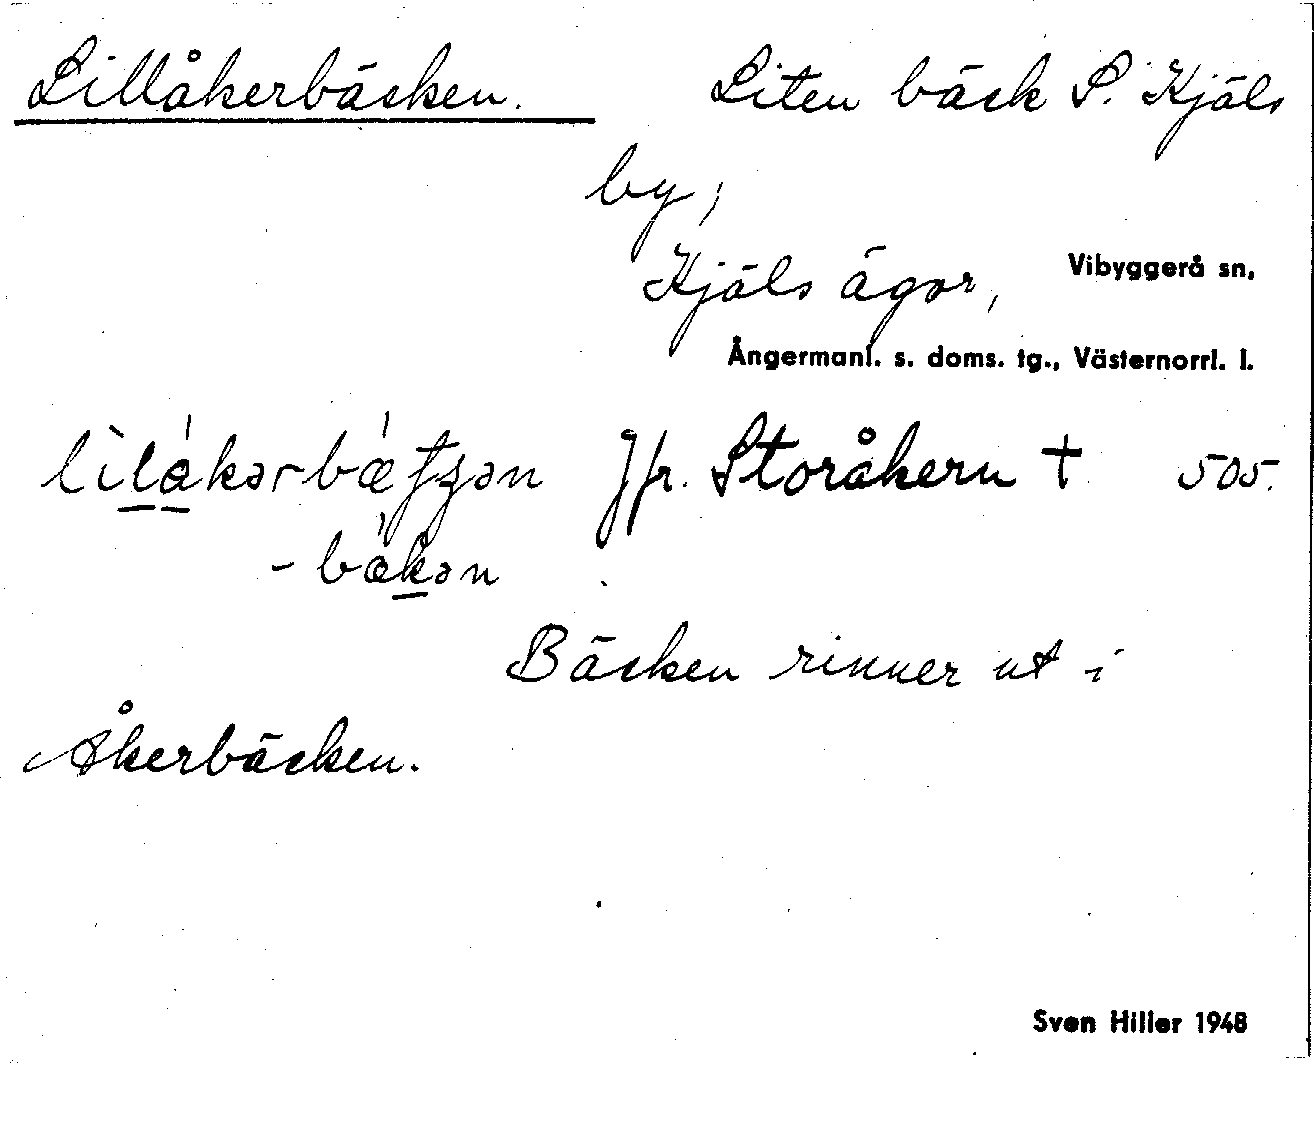 Lillåkerbäcken. Liten bäck S. Kjäls
by,
Kjäls ägor, Vibyggerå sn,
Ångermanl. s. doms. tg., Västernorrl. l.
Jfr. Storåkern + 505.
Bäcken rinner ut i
Åkerbäcken.
Sven Hiller 1948